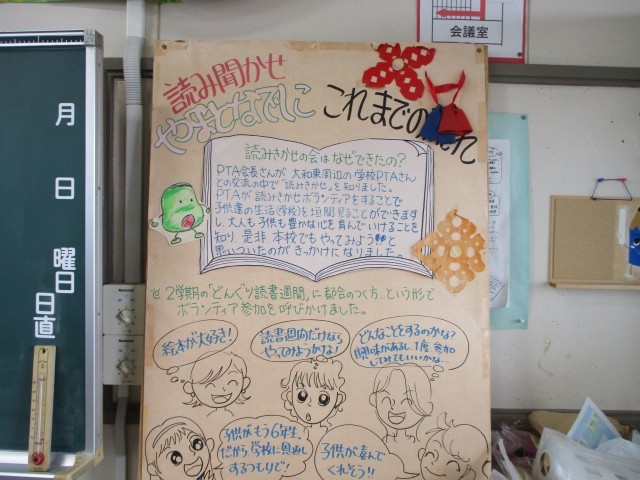 会議室
月
日
曜日
日直
読み聞かせ
やまとなでしこ
これまでの
読みきかせの会はなぜできたの?
PTA会長さんが 大和東周辺の学校PTAさん
との交流の中で「読みきかせ」を知りました。
PTAが読みきかせボランティアをすることで
子供達の生活(学校)を垣間見ることができますし
し、大人も子供も豊かな心を育んでいけることを
知り、是非 本校でもやってみよう!!と
思いついたのが きっかけになりました。
2学期の「どんぐり読書週間」に都合のつく方…という形で
ボランティア参加を呼びかけました。
絵本が大好き!
読書週間だけなら
やってみよっかな!
どんなことをするのかな?
興味があるし1度参加
してみてもいいかな…
子供がもう6年生。
だから学校に恩返し
するつもりで!
子供が喜んで
くれそう!!